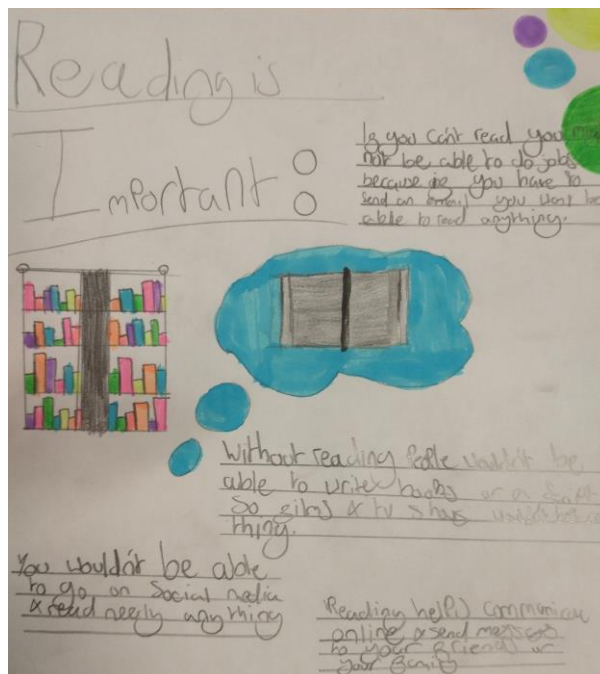 Reading is
Important:
If you can't read you
not be able to do jobs
because if you have to
send an email you wont be
able to read anything.
Without reading People wouldn't be
able to write books or a script
So films & tv shows wouldn't be a
thing.
You wouldn't be able
to go on Social media
& read neerly anything
Reading helps communicate
online & send messages
to your friends or
your family